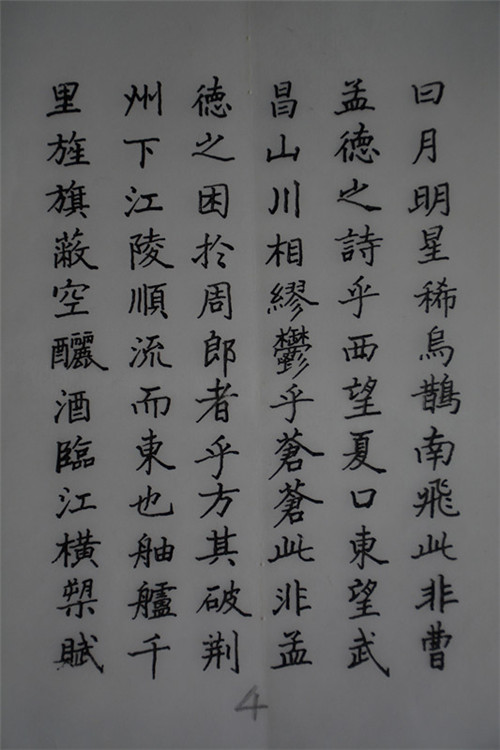 曰月明星稀烏鵲南飛此非曹
孟德之詩乎西望夏口東望武
昌山川相繆鬱乎蒼蒼此非孟
德之困於周郎者乎方其破荆
州下江陵順流而東也舳艫千
里旌旗蔽空釃酒臨江橫槊賦
4